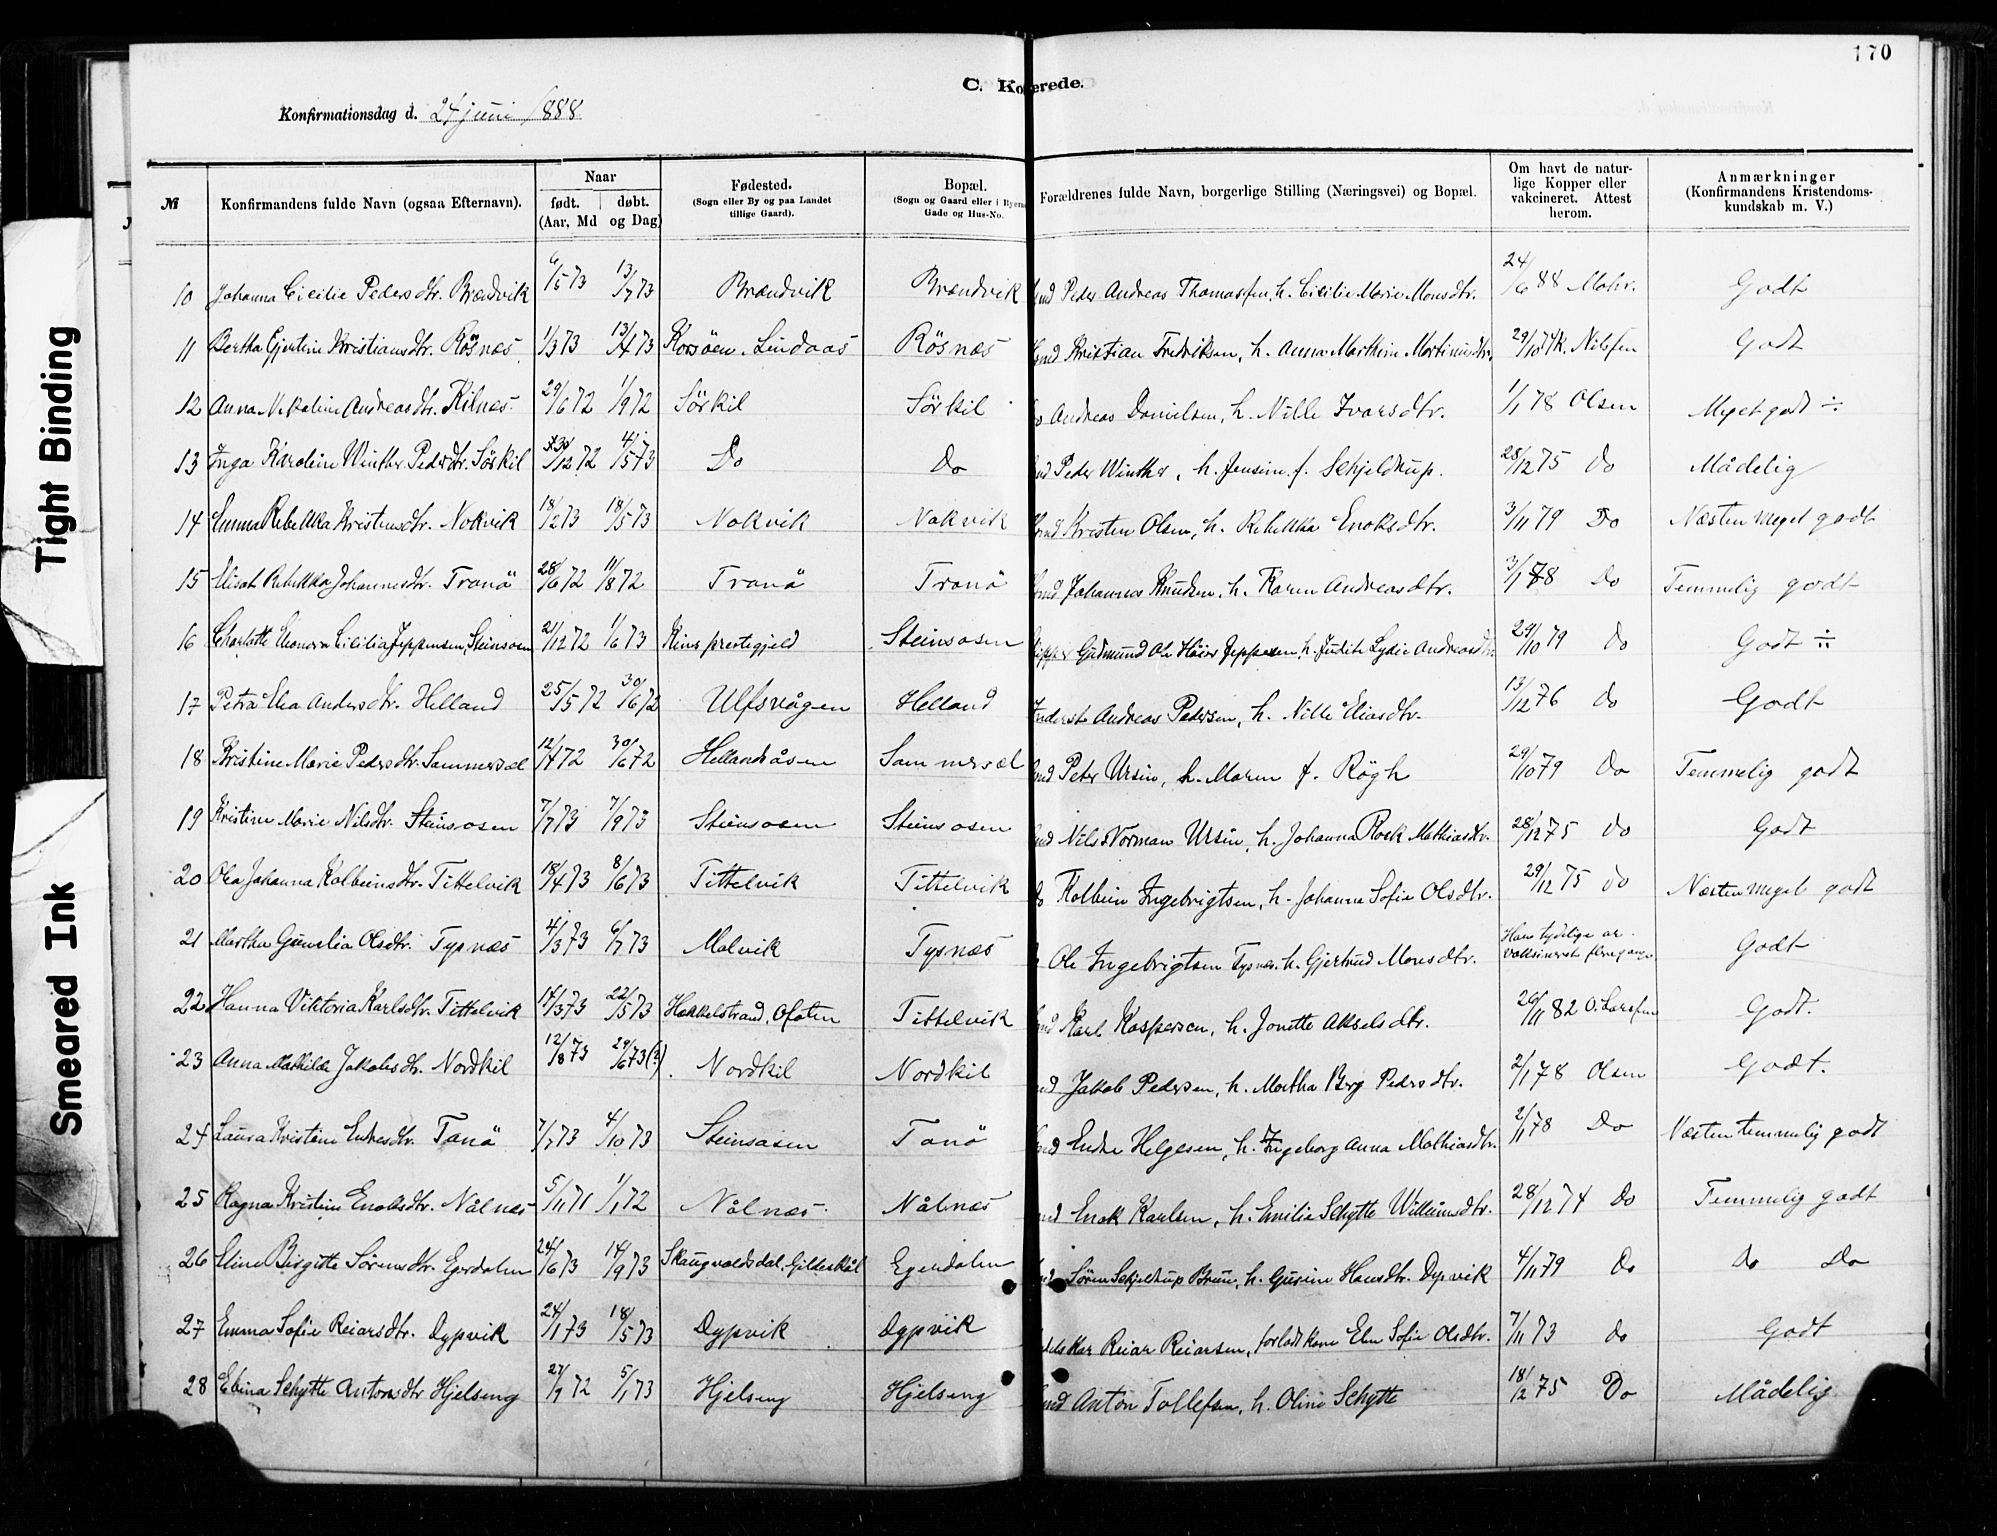 170
C. Ko erede.
Konfirmationsdag d. 24 juni 1888
Tight Binding
Smeared Ink
№ Konfirmandens fulde Navn (ogsaa Efternavn). Naar født. (Aar, Md døbt. og Dag) Fødested. (Sogn eller By og paa Landet tillige Gaard). Bopæl. (Sogn og Gaard eller i Byerne Gade og Hus-No. Forældrenes fulde Navn, borgerlige Stilling (Næringsvei) og Bopæl. Om havt de naturlige Kopper eller vakcineret. Attest herom. Anmærkninger (Konfirmandens Kristendomskundskab m. V.)
10 Johanna Cicilie Pedersdtr. Brændvik 6/5 73 13/7 73 Brændvik Brændvik Peder Andreas Thomassen, h. Cicilie Marie Monsdtr. 24/6 88 Mohr. Godt
11 Bertha Gjertine Kristiansdtr. Rösnæs 1/3 73 13/4 73 Korsöen, Lindaas Rösnæs Kristian Fredriksen, h. Anna Marthine Martinusdtr. 29/10 74 K. Nilssen Godt
12 Anna Nikoline Andreasdtr. Kilnæs 29/6 72 1/9 72 Sörkil Sörkil Andreas Danielsen, h. Nille Ivarsdtr. 1/1 78 Olsen Meget godt ÷
13 Inga Karoline Winther Pedersdtr. Sörkil 30/12 72 4/5 73 Do Do Peder Winther, h. Jensine f. Schjeldrup. 28/12 75 Do Mådelig
14 Emma Rebekka Kristensdtr. Nokvik 18/2 73 18/5 73 Nokvik Nokvik Kristen Olsen, h. Rebekka Enoksdtr. 3/11 79 Do Næsten meget godt
15 Elisat Rebekka Johannesdtr. Tranö 28/6 72 11/8 72 Tranö Tranö Johannes Knudsen, h. Karen Andreasdtr. 3/1 78 Do Temmelig godt
16 Charlotte Eleonora Cicilia Jeppensen, Steinsosen 21/12 72 1/6 73 Kins prestegjeld Steinsosen Gudmund Ole Höier Jeppesen, h. Judith Lydie Andreasdtr. 29/10 79 Do Godt ÷
17 Petra Elea Andersdtr. Helland 25/5 72 30/6 72 Ulfsvågen Helland Inderst Andreas Pedersen, h. Nille Eliasdtr. 13/12 76 Do Godt
18 Kristine Marie Pedersdtr. Sammersæl 12/4 72 30/6 72 Hellandsåsen Sammersæl Peter Ursin, h. Maren f. Rögh 29/10 79 Do Temmelig godt
19 Kristine Marie Nilsdtr. Steinsosen 7/7 73 7/9 73 Steinsosen Steinsosen Nils Norman Ursin, h. Johanna Rosk Mathiasdtr. 28/12 75 Do Godt
20 Olea Johanna Kolbeinsdtr. Tittelvik 18/4 73 8/6 73 Tittelvik Tittelvik Kolbein Ingebrigtsen, h. Johanna Sofie Olsdtr. 29/12 75 Do Næsten meget godt
21 Martha Gunelia Olsdtr. Tysnæs 4/3 73 6/7 73 Malvik Tysnæs Ole Ingebrigtsen Tysnæs, h. Gjertrud Monsdtr. Have tydelige ar. Vaksineret flere gange. Godt
22 Hanna Viktoria Karlsdtr. Tittelvik 14/3 73 22/5 73 Hækkelstrand, Ofoten Tittelvik Karl Kaspersen, h. Jonette Akselsdtr. 26/11 82 O. Larssen Godt.
23 Anna Mathilde Jakobsdtr. Nordkil 12/8 73 29/6 73 (?) Nordkil Nordkil Jakob Pedersen, h. Martha Berg Pedersdtr. 2/1 78 Olsen Godt.
24 Laura Kristine Endresdtr. Tanö 7/7 73 4/10 73 Steinsosen Tanö Endre Helgesen, h. Ingeborg Anna Mathiasdtr. 2/1 78 Do Næsten temmelig godt
25 Ragna Kristine Enoksdtr. Nålnæs 5/11 71 1/1 72 Nålnæs Nålnæs Enok Karlsen, h. Emilie Schytte Willumsdtr. 28/12 74 Do Temmelig godt
26 Eline Birgitte Sörensdtr. Egerdalen 24/6 73 14/9 73 Skaugvoldsdal, Gildeskål Egerdalen Sören Schjeldrup Bruun, h. Gurine Hansdtr. Dypvik 4/11 79 Do Do Do
27 Emma Sofie Reiarsdtr. Dypvik 24/1 73 18/5 73 Dypvik Dypvik Reiar Reiarsen, forladt kone Elen Sofie Olsdtr. 7/11 73 Do Godt
28 Ebina Schytte Antonsdtr Hjelseng 27/7 72 5/1 73 Hjelseng Hjelseng Anton Tollefsen, h. Oline Schytte 18/2 75 Do Mådelig